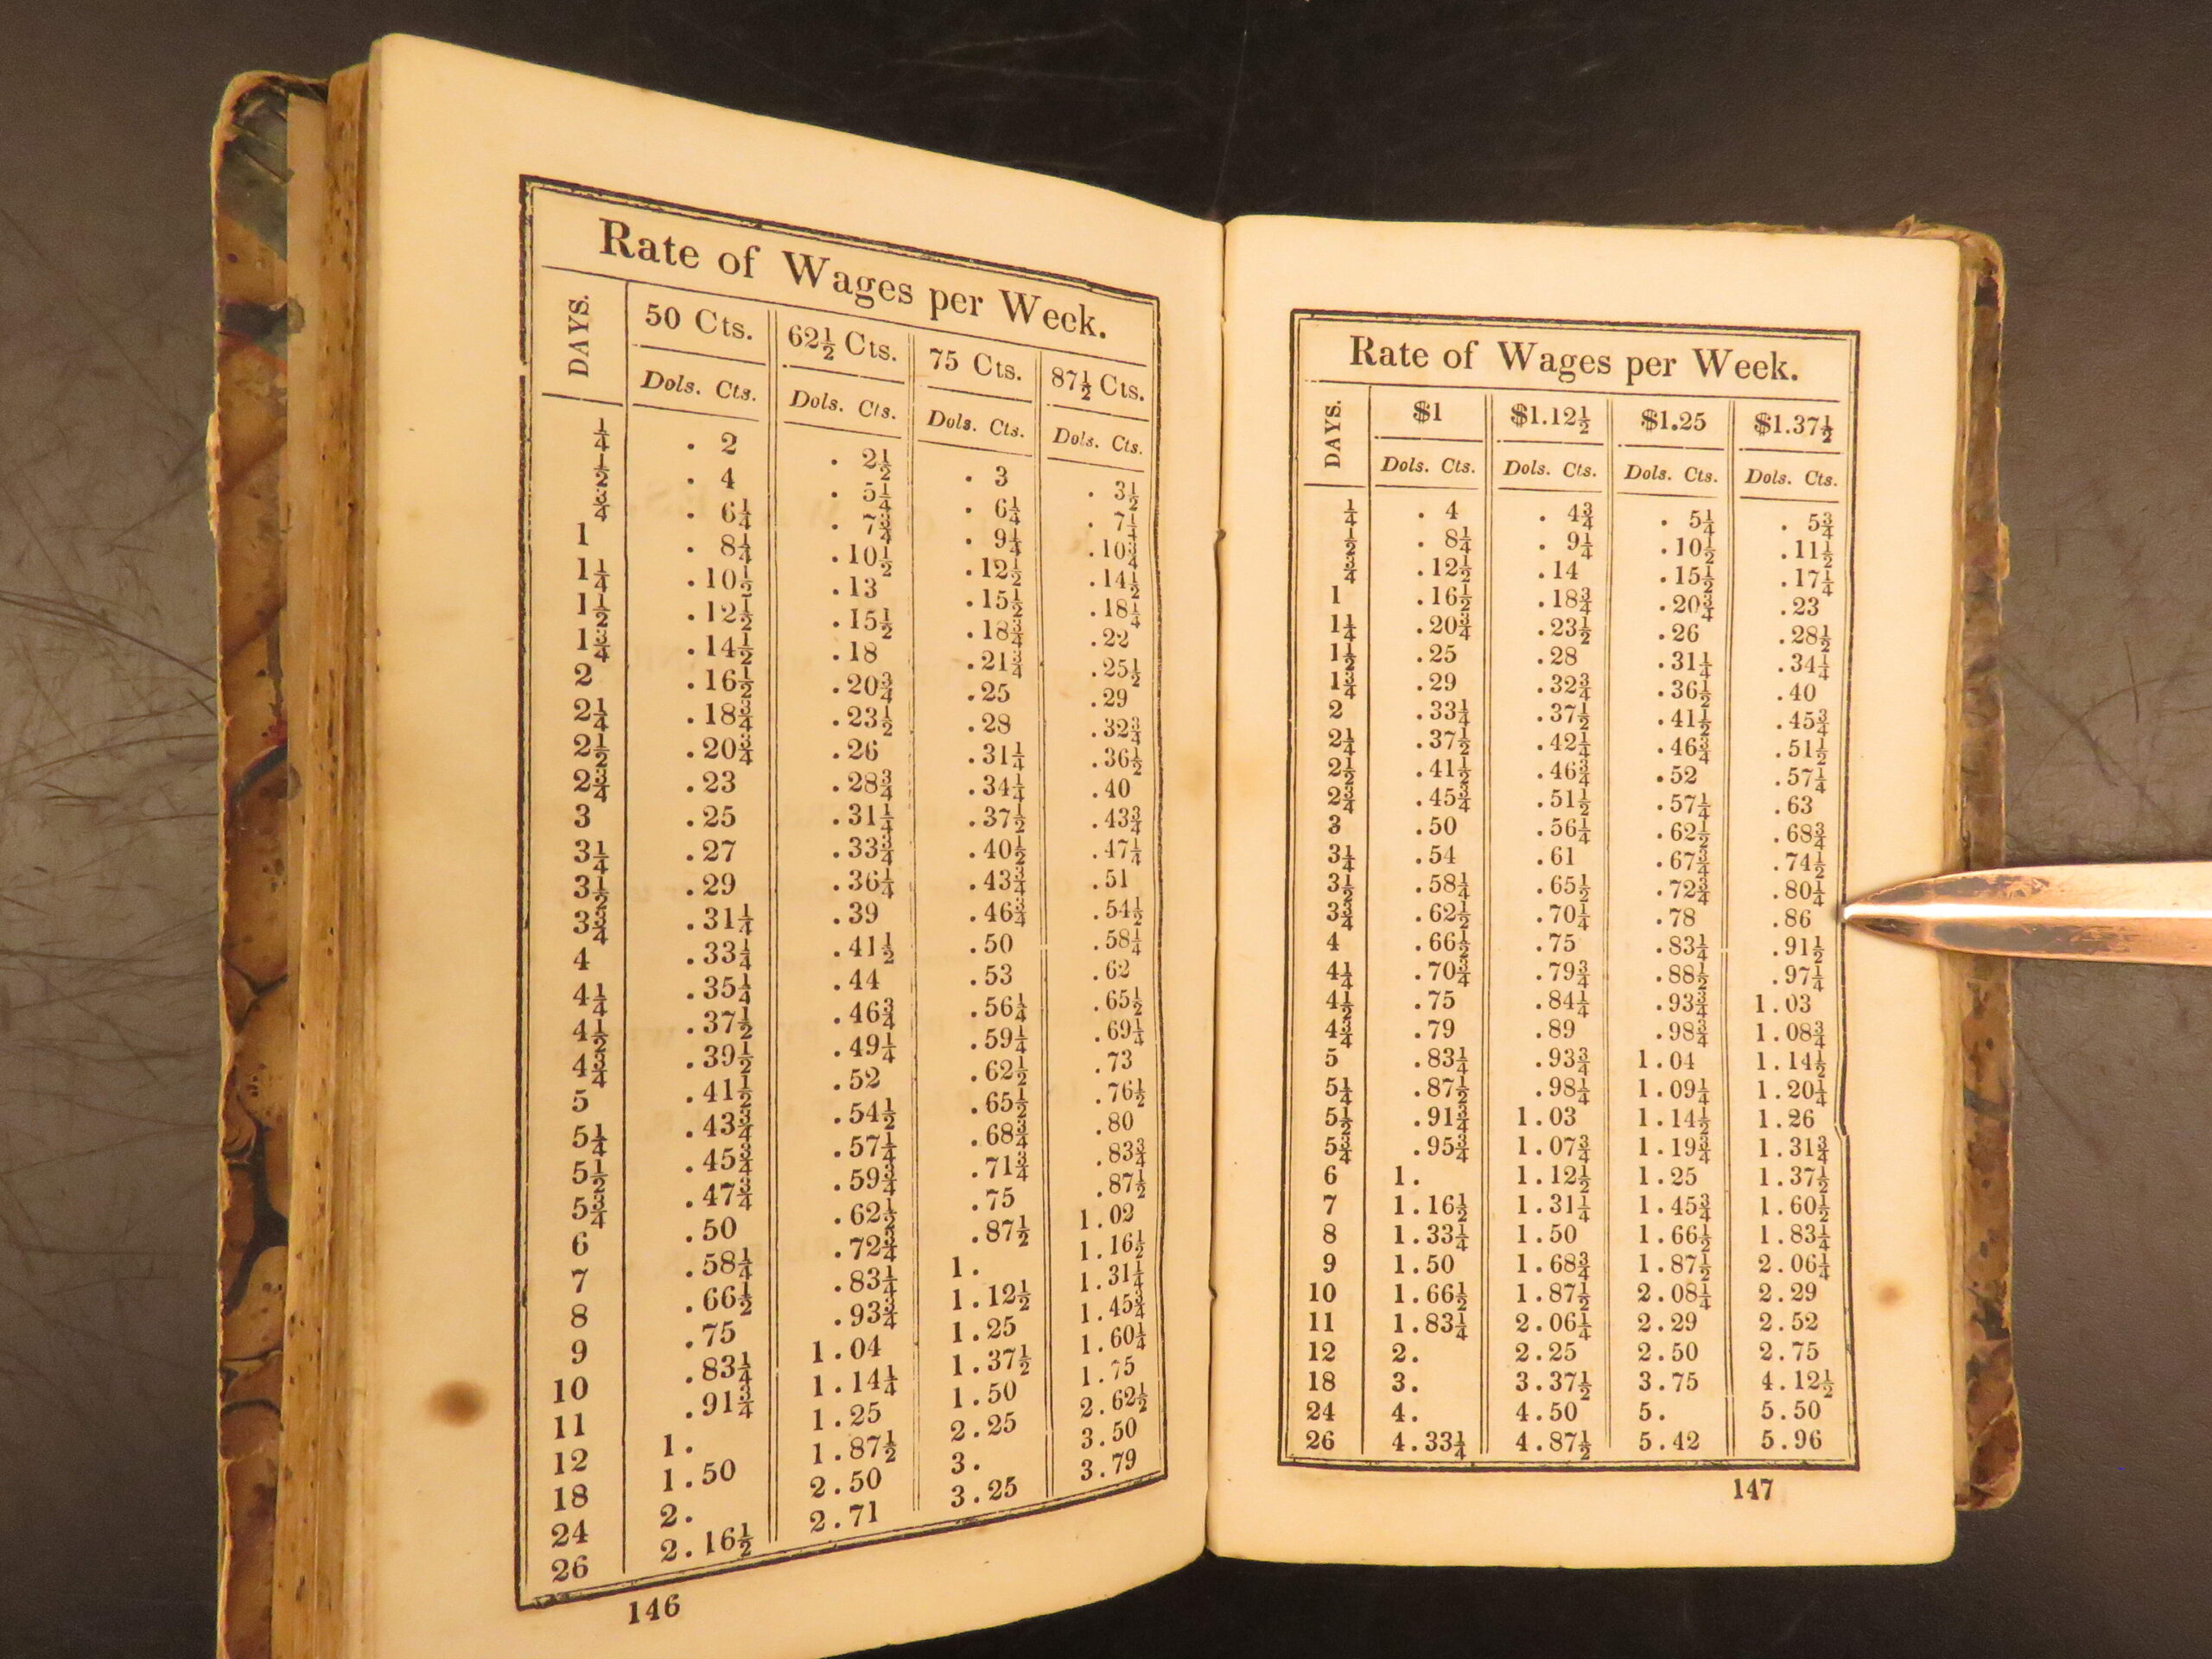 Rate of Wages per Week.
DAYS. 50 Cts. 62½ Cts. 75 Cts. 87½ Cts.
Dols. Cts. Dols. Cts. Dols. Cts. Dols. Cts.
¼ . 2 . 2½ . 3 . 3½
½ . 4 . 5¼ . 6¼ . 7¼
¾ . 6¼ . 7¾ . 9¼ .10¾
1 . 8¼ .10½ .12½ .14½
1¼ .10½ .13 .15½ .18¼
1½ .12½ .15½ .18¾ .22
1¾ .14½ .18 .21¾ .25½
2 .16½ .20¾ .25 .29
2¼ .18¾ .23½ .28 .32¾
2½ .20¾ .26 .31¼ .36½
2¾ .23 .28¾ .34¼ .40
3 .25 .31¼ .37½ .43¾
3¼ .27 .33¾ .40½ .47¼
3½ .29 .36¼ .43¾ .51
3¾ .31¼ .39 .46¾ .54½
4 .33¼ .41½ .50 .58¼
4¼ .35¼ .44 .53 .62
4½ .37½ .46¾ .56¼ .65½
4¾ .39½ .49¼ .59¼ .69¼
5 .41½ .52 .62½ .73
5¼ .43¾ .54½ .65½ .76½
5½ .45¾ .57¼ .68¾ .80
5¾ .47¾ .59¾ .71¾ .83¾
6 .50 .62½ .75 .87½
7 .58¼ .72¾ .87½ 1.02
8 .66½ .83¼ 1. 1.16½
9 .75 .93¾ 1.12½ 1.31¼
10 .83¼ 1.04 1.25 1.45¾
11 .91¾ 1.14¼ 1.37½ 1.60¼
12 1. 1.25 1.50 1.75
18 1.50 1.87½ 2.25 2.62½
24 2. 2.50 3. 3.50
26 2.16½ 2.71 3.25 3.79
146
Rate of Wages per Week.
DAYS. $1 $1.12½ $1.25 $1.37½
Dols. Cts. Dols. Cts. Dols. Cts. Dols. Cts.
¼ . 4 . 4¾ . 5¼ . 5¾
½ . 8¼ . 9¼ .10½ .11½
¾ .12½ .14 .15½ .17¼
1 .16½ .18¾ .20¾ .23
1¼ .20¾ .23½ .26 .28½
1½ .25 .28 .31¼ .34¼
1¾ .29 .32¾ .36½ .40
2 .33¼ .37½ .41½ .45¾
2¼ .37½ .42¼ .46¾ .51½
2½ .41½ .46¾ .52 .57¼
2¾ .45¾ .51½ .57¼ .63
3 .50 .56¼ .62½ .68¾
3¼ .54 .61 .67¾ .74½
3½ .58¼ .65½ .72¾ .80¼
3¾ .62½ .70¼ .78 .86
4 .66½ .75 .83¼ .91½
4¼ .70¾ .79¾ .88½ .97¼
4½ .75 .84¼ .93¾ 1.03
4¾ .79 .89 .98¾ 1.08¾
5 .83¼ .93¾ 1.04 1.14½
5¼ .87½ .98¼ 1.09¼ 1.20¼
5½ .91¾ 1.03 1.14½ 1.26
5¾ .95¾ 1.07¾ 1.19¾ 1.31¾
6 1. 1.12½ 1.25 1.37½
7 1.16½ 1.31¼ 1.45¾ 1.60½
8 1.33¼ 1.50 1.66½ 1.83¼
9 1.50 1.68¾ 1.87½ 2.06¼
10 1.66½ 1.87½ 2.08¼ 2.29
11 1.83¼ 2.06¼ 2.29 2.52
12 2. 2.25 2.50 2.75
18 3. 3.37½ 3.75 4.12½
24 4. 4.50 5. 5.50
26 4.33¼ 4.87½ 5.42 5.96
147